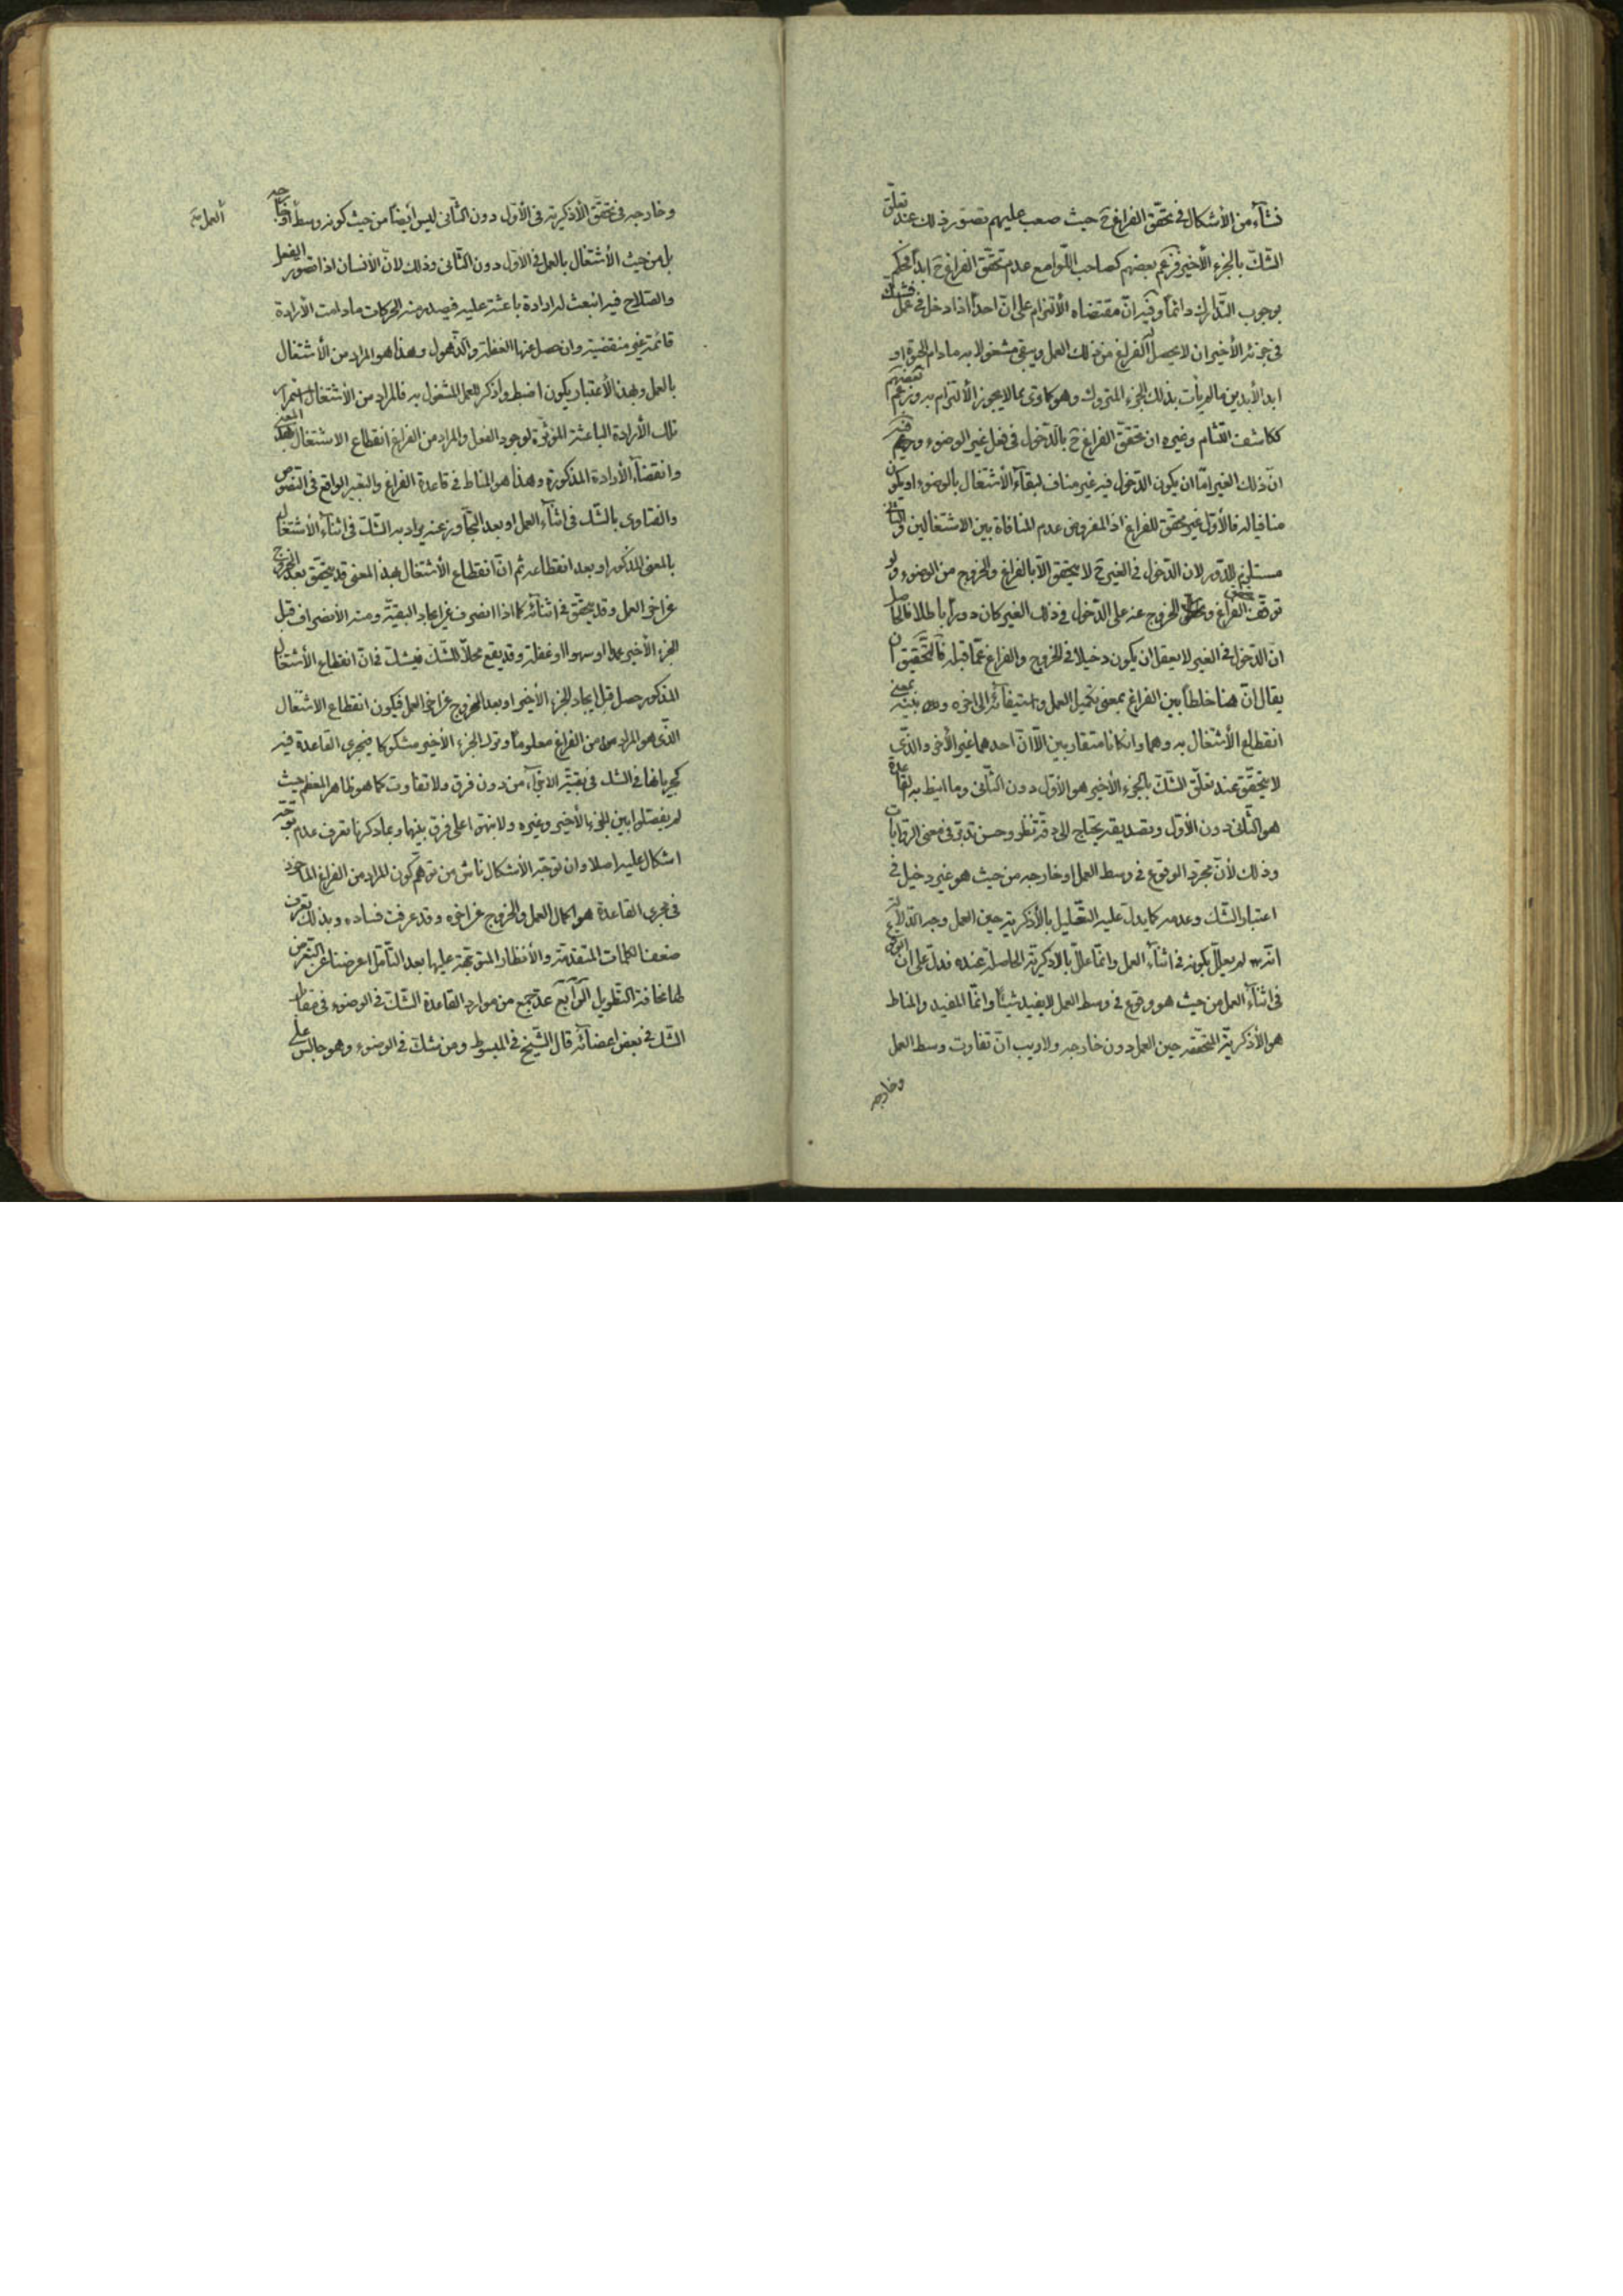 نشأ من الأشكال فى تحقّق الفراغ ح حيث صعب عليهم تصوّر ذلك عند تعلّق
الشّك بالجزء الأخير فزعم بعضهم كصاحب اللّوامع عدم تحقّق الفراغ ح ابداً فحكم
بوجوب التّدارك دائماً وفيه انّ مقتضاه الألتزام على انّ احداً اذا دخل فى عمل فشك
فى جزئه الأخير ان لا يحصل له الفراغ من ذلك العمل ويبقى مشغولا به مادام الحيوة او
ابد الأبدين مالم يأت بذلك الجزء المتروك وهو كما ترى مما لا يجوز الألتزام به وزعم بعضهم
ككاشف اللّثام وغيره ان تحقّق الفراغ ح بالدّخول فى فعل غير الوضوء وفيه
انّ ذلك الغير امّا ان يكون الدّخول فيه غير مناف لبقاء الأشتغال بالوضوء او يكون
منافيا له فالأوّل غير محقّق للفراغ اذ المفروض عدم المنافاة بين الاشتغالين والثانى
مستلزم للدّور لان الدّخول فى الغير ح لا يتحقق الاّ بالفراغ والخروج من الوضوء ولو
توقّف الفراغ والخروج عنه على الدّخول فى ذلك الغير كان دوراً باطلا فالحاصل
انّ الدّخول فى الغير لا يعقل ان يكون دخيلا فى الخروج والفراغ عمّا قبله فالتّحقيق ان
يقال انّ هنا خلطاً بين الفراغ بمعنى تكميل العمل واستيفائه الى اخره وبينه بمعنى
انقطاع الأشتغال به وهما وان كانا متقاربين الاّ انّ احدهما غير الأخر والّذى
لا يتحقّق عند تعلّق الشّكّ بالجزء الأخير هو الأوّل دون الثّانى وما انيط به القاعدة
هو الثّانى دون الأوّل وتصديقه يحتاج الى دقّة نظر وحسن تدبّر فى معنى الرّوايات
وذلك لأنّ مجرّد الوقوع فى وسط العمل او خارجه من حيث هو غير دخيل فى
اعتبار الشّك وعدمه كما يدلّ عليه التّعليل بالأذكريّة حين العمل وجه الدّلالة
انّه لم يعلّل بكونه فى اثناء العمل وانّما علّل بالأذكريّة الحاصلة عنده فدلّ على انّ الوقوع
فى اثناء العمل من حيث هو وقوع فى وسط العمل لا يفيد شيئاً وانّما المفيد والمناط
هو الأذكريّة المتحقّقة حين العمل دون خارجه ولا ريب انّ تفاوت وسط العمل
وخارجه
وخارجه فى تحقّق الأذكريّة فى الأوّل دون الثّانى ليس أيضاً من حيث كونه وسطاً او خارجه
العمل
بل من حيث الأشتغال بالعمل فى الأوّل دون الثّانى وذلك لانّ الأنسان اذا تصوّر الفعل
والصّلاح فيه انبعث له ارادة باعثة عليه فيصدر منه الحركات مادامت الأرادة
قائمة غير منقضية وان حصل عنها الغفلة والذّهول وهذا هو المراد من الأشتغال
بالعمل وبهذا الأعتبار يكون اضبط واذكر للعمل المشغول به فالمراد من الأشتغال استمرار
تلك الأرادة الباعثة المؤثّرة لوجود الفعل والمراد من الفراغ انقطاع الاشتغال بهذا المعنى
وانقضاء الأرادة المذكورة وهذا هو المناط فى قاعدة الفراغ والتعبير الواقع فى النّصوص
والفتاوى بالشّك فى اثناء العمل او بعد التّجاوز عنه يراد به الشّك فى اثناء الأشتغال
بالمعنى المذكور او بعد انقطاعه ثم انّ انقطاع الأشتغال بهذا المعنى قد يتحقّق بعد الخروج
عن اخر العمل وقد يتحقّق فى اثنائه كما اذا انصرف عن ايجاد البقيّة ومنه الأنصراف قبل
الجزء الأخير عمدا او سهوا او غفلة وقد يقع محلاّ للشّك فيشك فى انّ انقطاع الأشتغال
المذكور حصل قبل ايجاد الجزء الأخير او بعد الخروج عن اخر العمل فيكون انقطاع الاشتغال
الّذى هو المراد من الفراغ معلوماً وترك الجزء الأخير مشكوكا فيجرى القاعدة فيه
كجريانها فى الشك فى بقيّة الاجزاء من دون فرق ولا تفاوت كما هو ظاهر المعظم حيث
لم يفصّلوا بين الجزء الأخير وغيره ولا ينهوا على فرق بينها وبما ذكرنا تعرف عدم توجّه
اشكال عليه اصلا وان توجّه الأشكال ناش من توهّم كون المراد من الفراغ المأخوذ
فى مجرى القاعدة هو اكمال العمل والخروج عن اخره وقد عرفت فساده وبذلك تعرف
ضعف الكلمات المتقدّمة والأنظار المتوجّهة عليها بعد التّأمّل اعرضنا عن التعرّض
لها مخافة التّطويل الرّابع عدّ جمع من موارد القاعدة الشّكّ فى الوضوء فى مقابل
الشّك فى بعض اعضائه قال الشّيخ فى المبسوط ومن شكّ فى الوضوء وهو جالس على